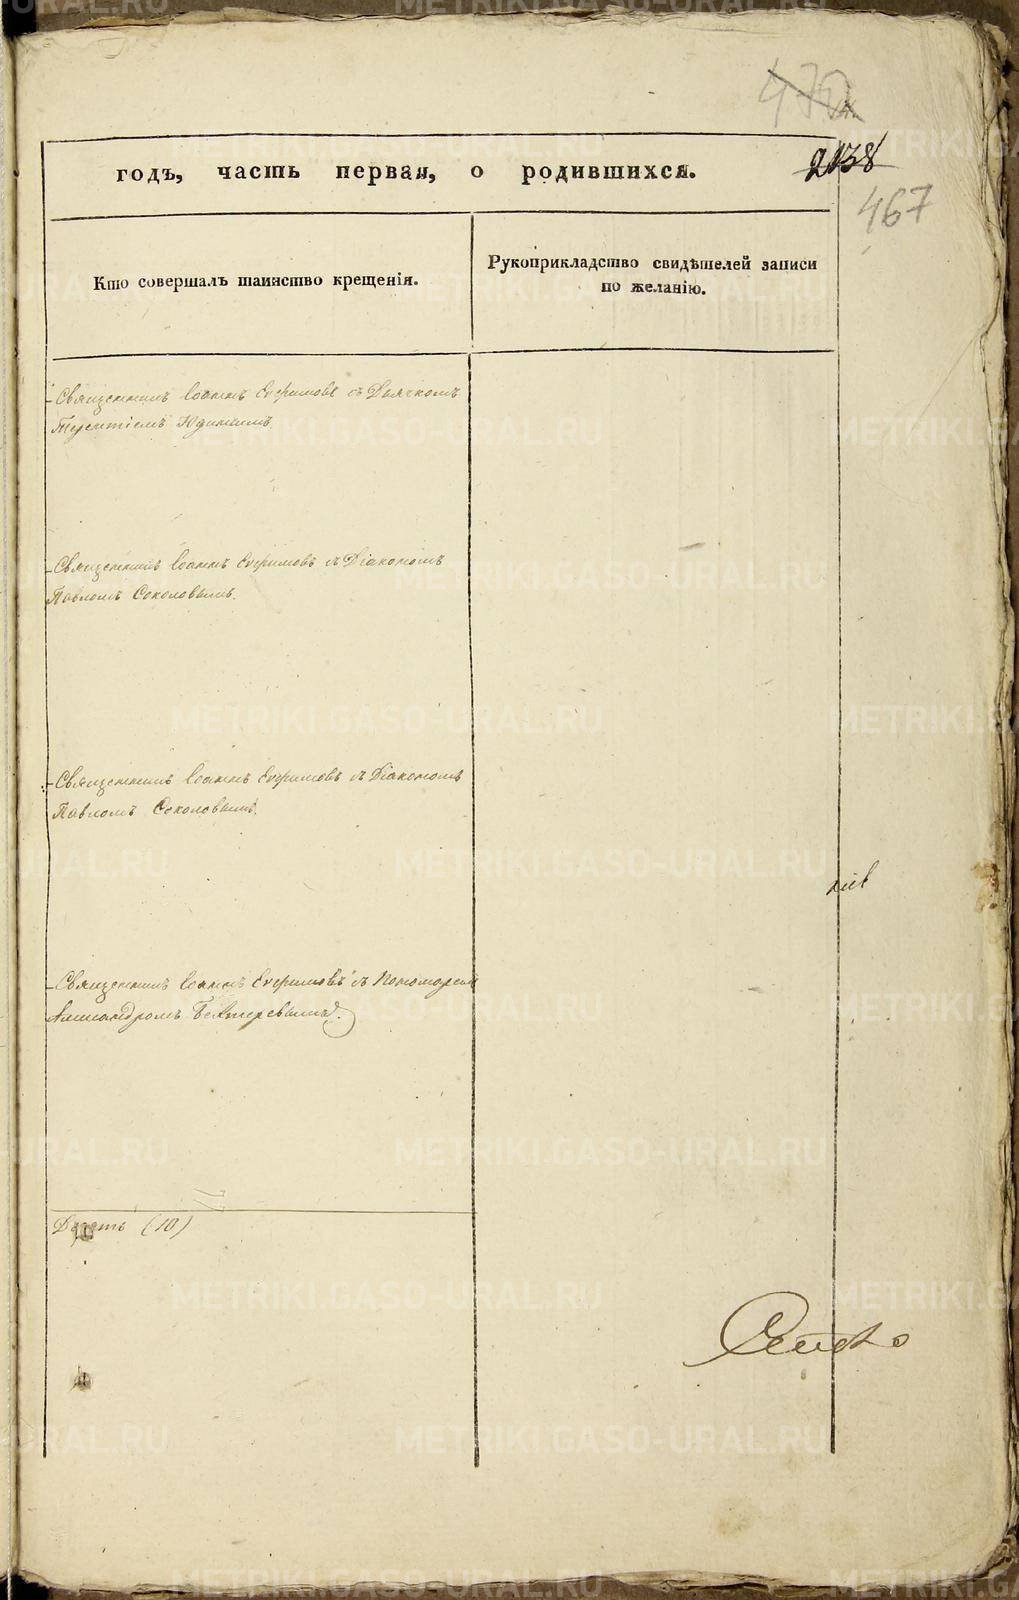 472
годъ, часть первая, о родившихся.
2138
467
Кто совершалъ таинство крещенія.
Рукоприкладство свидѣтелей записи
по желанію.
Священникъ Іоаннъ Ефимовъ съ Дьячкомъ
Терентіемъ Юдинымъ
Священникъ Іоаннъ Ефимовъ съ Діакономъ
Павломъ Соколовымъ.
Священникъ Іоаннъ Ефимовъ съ Діакономъ
Павломъ Соколовымъ.
Священникъ Іоаннъ Ефимовъ съ Пономаремъ
Александромъ Бехтеревымъ.
Десять (10)
METRIKI.GASO-URAL.RU